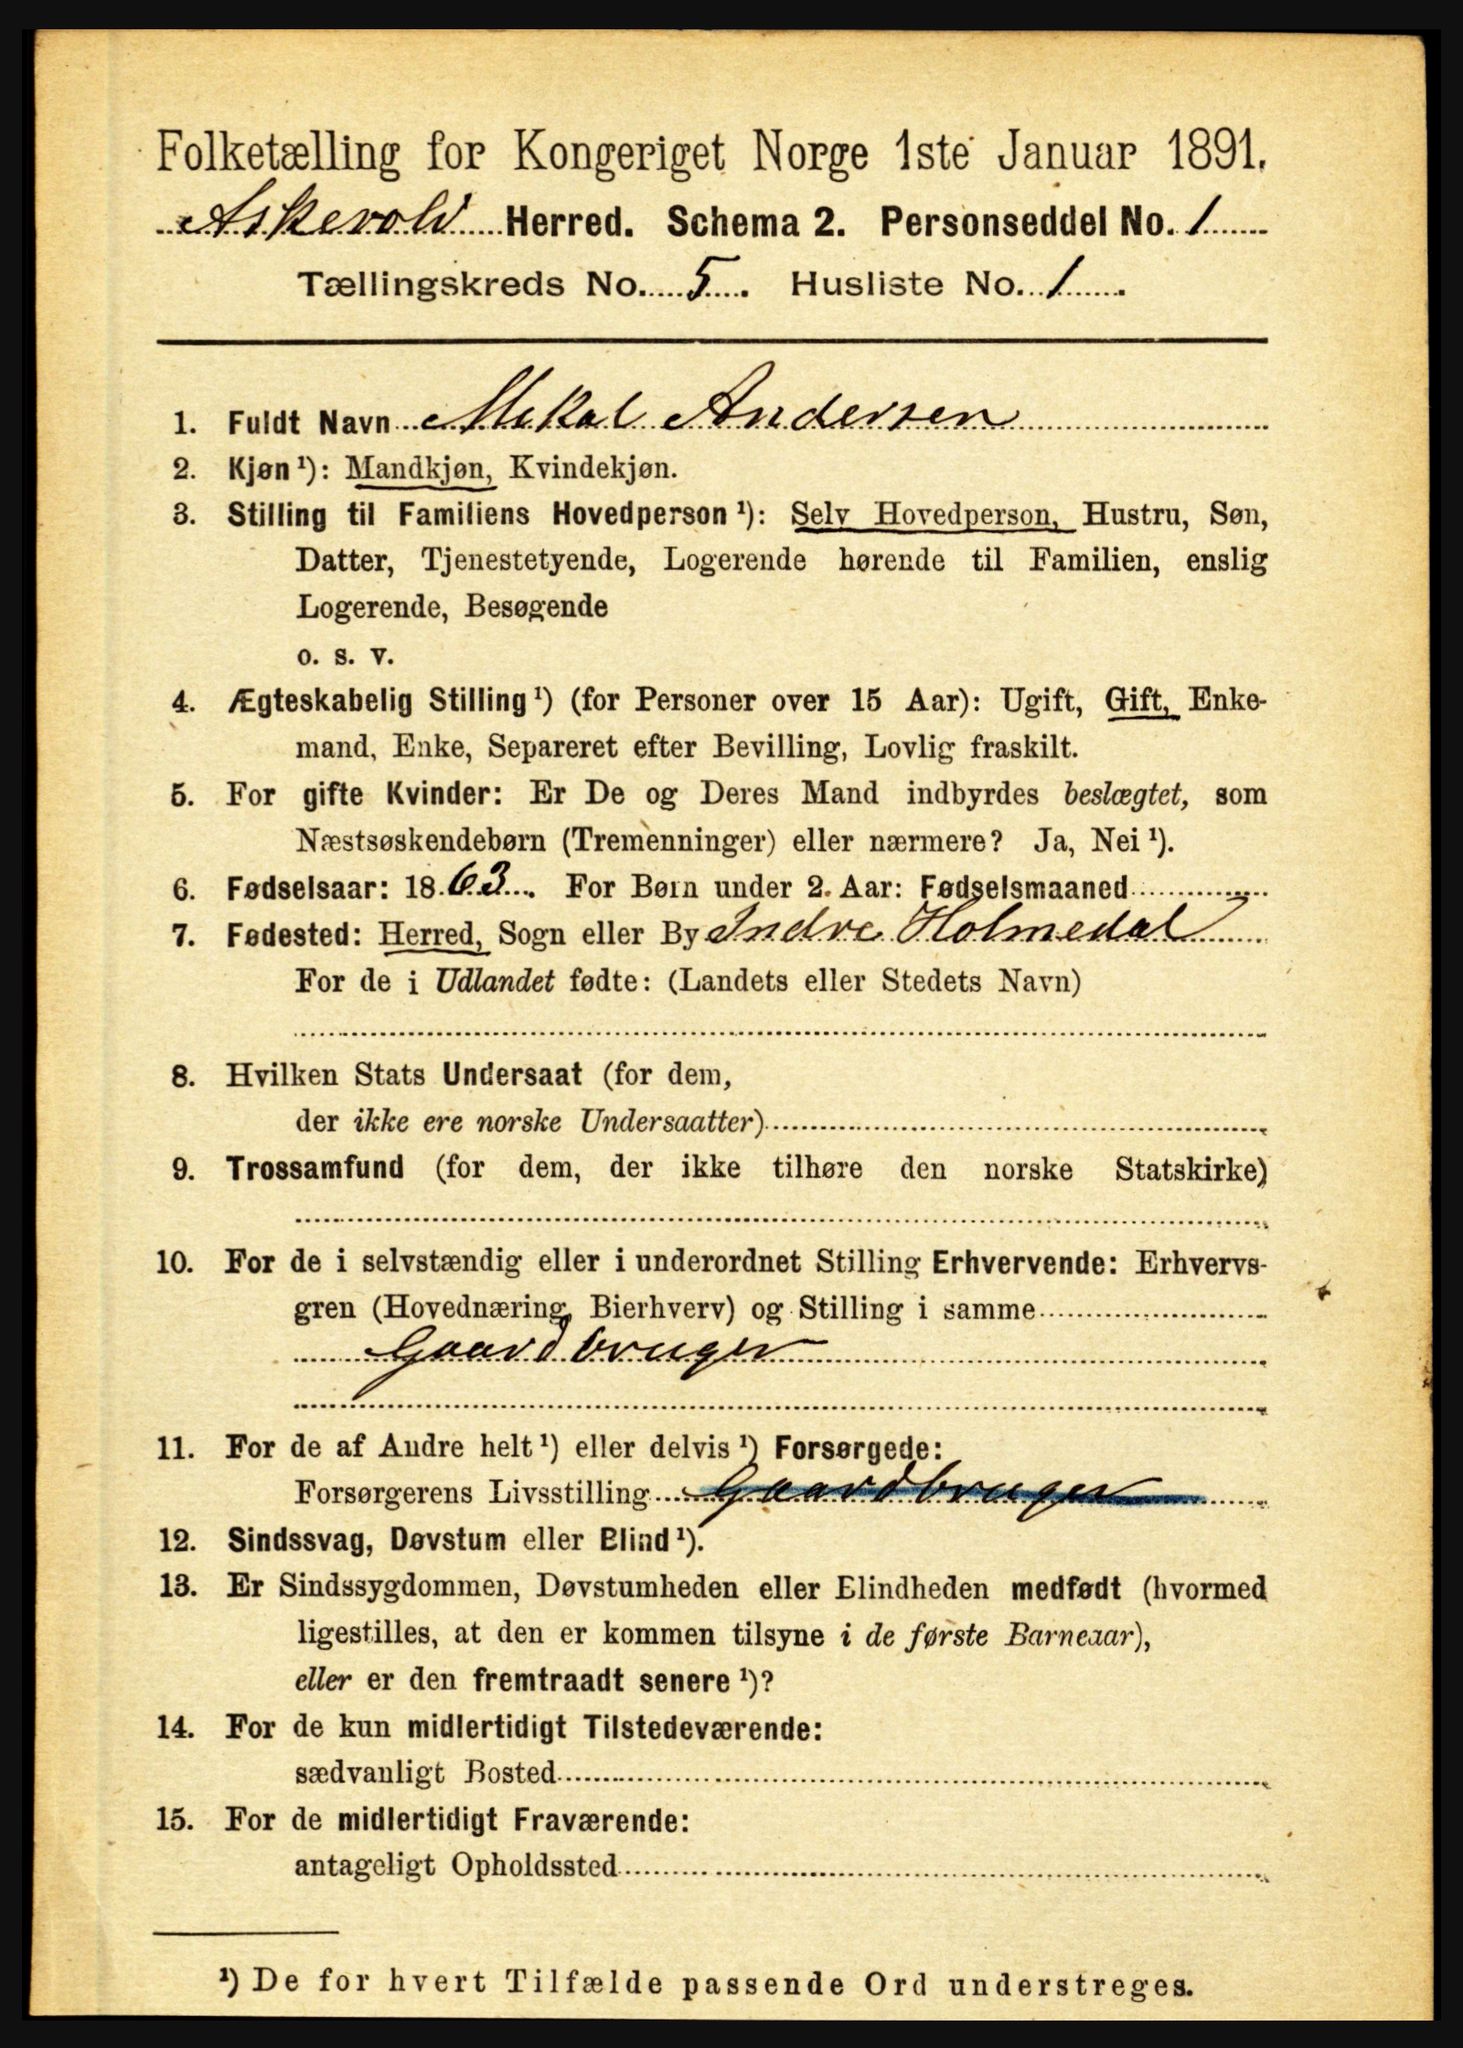 Folketælling for Kongeriget Norge 1ste Januar 1891.
Askevold Herred. Schema 2. Personseddel No. 1
Tællingskreds No. 5. Husliste No. 1.
1. Fuldt Navn Mikal Andersen
2. Kjøn ¹): Mandkjøn, Kvindekjøn.
3. Stilling til Familiens Hovedperson ¹): Selv Hovedperson, Hustru, Søn,
Datter, Tjenestetyende, Logerende hørende til Familien, enslig
Logerende, Besøgende
o. s. v.
4. Ægteskabelig Stilling ¹) (for Personer over 15 Aar): Ugift, Gift, Enke-
mand, Enke, Separeret efter Bevilling, Lovlig fraskilt.
5. For gifte Kvinder: Er De og Deres Mand indbyrdes beslægtet, som
Næstsøskendebørn (Tremenninger) eller nærmere? Ja, Nei ¹).
6. Fødselsaar: 1863. For Børn under 2. Aar: Fødselsmaaned
7. Fødested: Herred, Sogn eller By Indre Holmedal
For de i Udlandet fødte: (Landets eller Stedets Navn)
8. Hvilken Stats Undersaat (for dem,
der ikke ere norske Undersaatter)
9. Trossamfund (for dem, der ikke tilhøre den norske Statskirke)
10. For de i selvstændig eller i underordnet Stilling Erhvervende: Erhvervs-
gren (Hovednæring, Bierhverv) og Stilling i samme
Gaardbruger
11. For de af Andre helt ¹) eller delvis ¹) Forsørgede:
Forsørgerens Livsstilling Gaardbruger
12. Sindssvag, Døvstum eller Blind ¹).
13. Er Sindssygdommen, Døvstumheden eller Blindheden medfødt (hvormed
ligestilles, at den er kommen tilsyne i de første Barneaar),
eller er den fremtraadt senere ¹)?
14. For de kun midlertidigt Tilstedeværende:
sædvanligt Bosted
15. For de midlertidigt Fraværende:
antageligt Opholdssted
¹) De for hvert Tilfælde passende Ord understreges.